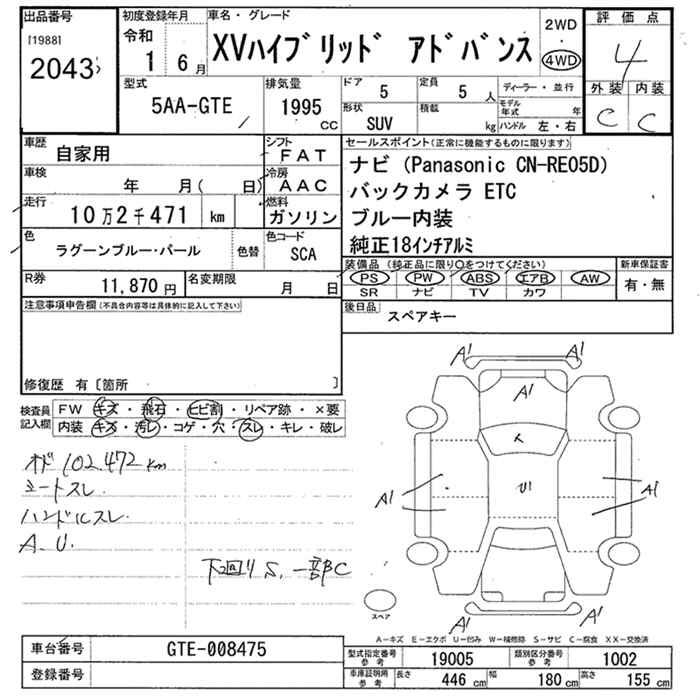 出品番号
[1988]
2043
初度登録年月
令和
1 6月
車名・グレード
XVハイブリッド アドバンス
2WD
4WD
評価点
4
外装 内装
C C
型式
5AA-GTE
排気量
1995
CC
ドア
5
定員
5人
形状
SUV
積載
kg
ディーラー・並行
モデル年式 年
ハンドル 左・右
車歴
自家用
シフト
FAT
車検
年 月( 日)
冷房
AAC
走行
10万2千471 km
燃料
ガソリン
色
ラグーンブルー・パール
色替
色コード
SCA
R券
11,870円
名変期限
月 日
セールスポイント(正常に機能するものに限ります)
ナビ (Panasonic CN-RE05D)
バックカメラ ETC
ブルー内装
純正18インチアルミ
装備品 (純正品に限り○をつけてください)
PS PW ABS エアB AW
SR ナビ TV カワ
新車保証書
有・無
後日品
スペアキー
注意事項申告欄(不具合内容等は具体的に記入して下さい)
修復歴 有〔箇所 〕
検査員記入欄
FW キズ・飛石・ヒビ割・リペア跡・×要
内装 キズ・汚レ・コゲ・穴・スレ・キレ・破レ
オド 102.472km
シートスレ
ハンドルスレ
A.U.
下回りS.一部C
A1 A1
A1
A1 U1 A1
A1 A1
スペア
A−キズ E−エクボ U−凹み W−補修跡 S−サビ C−腐食 XX−交換済
車台番号
GTE-008475
登録番号
型式指定番号 参考
19005
類別区分番号 参考
1002
車庫証明用 参考
長さ 446cm 幅 180cm 高さ 155cm